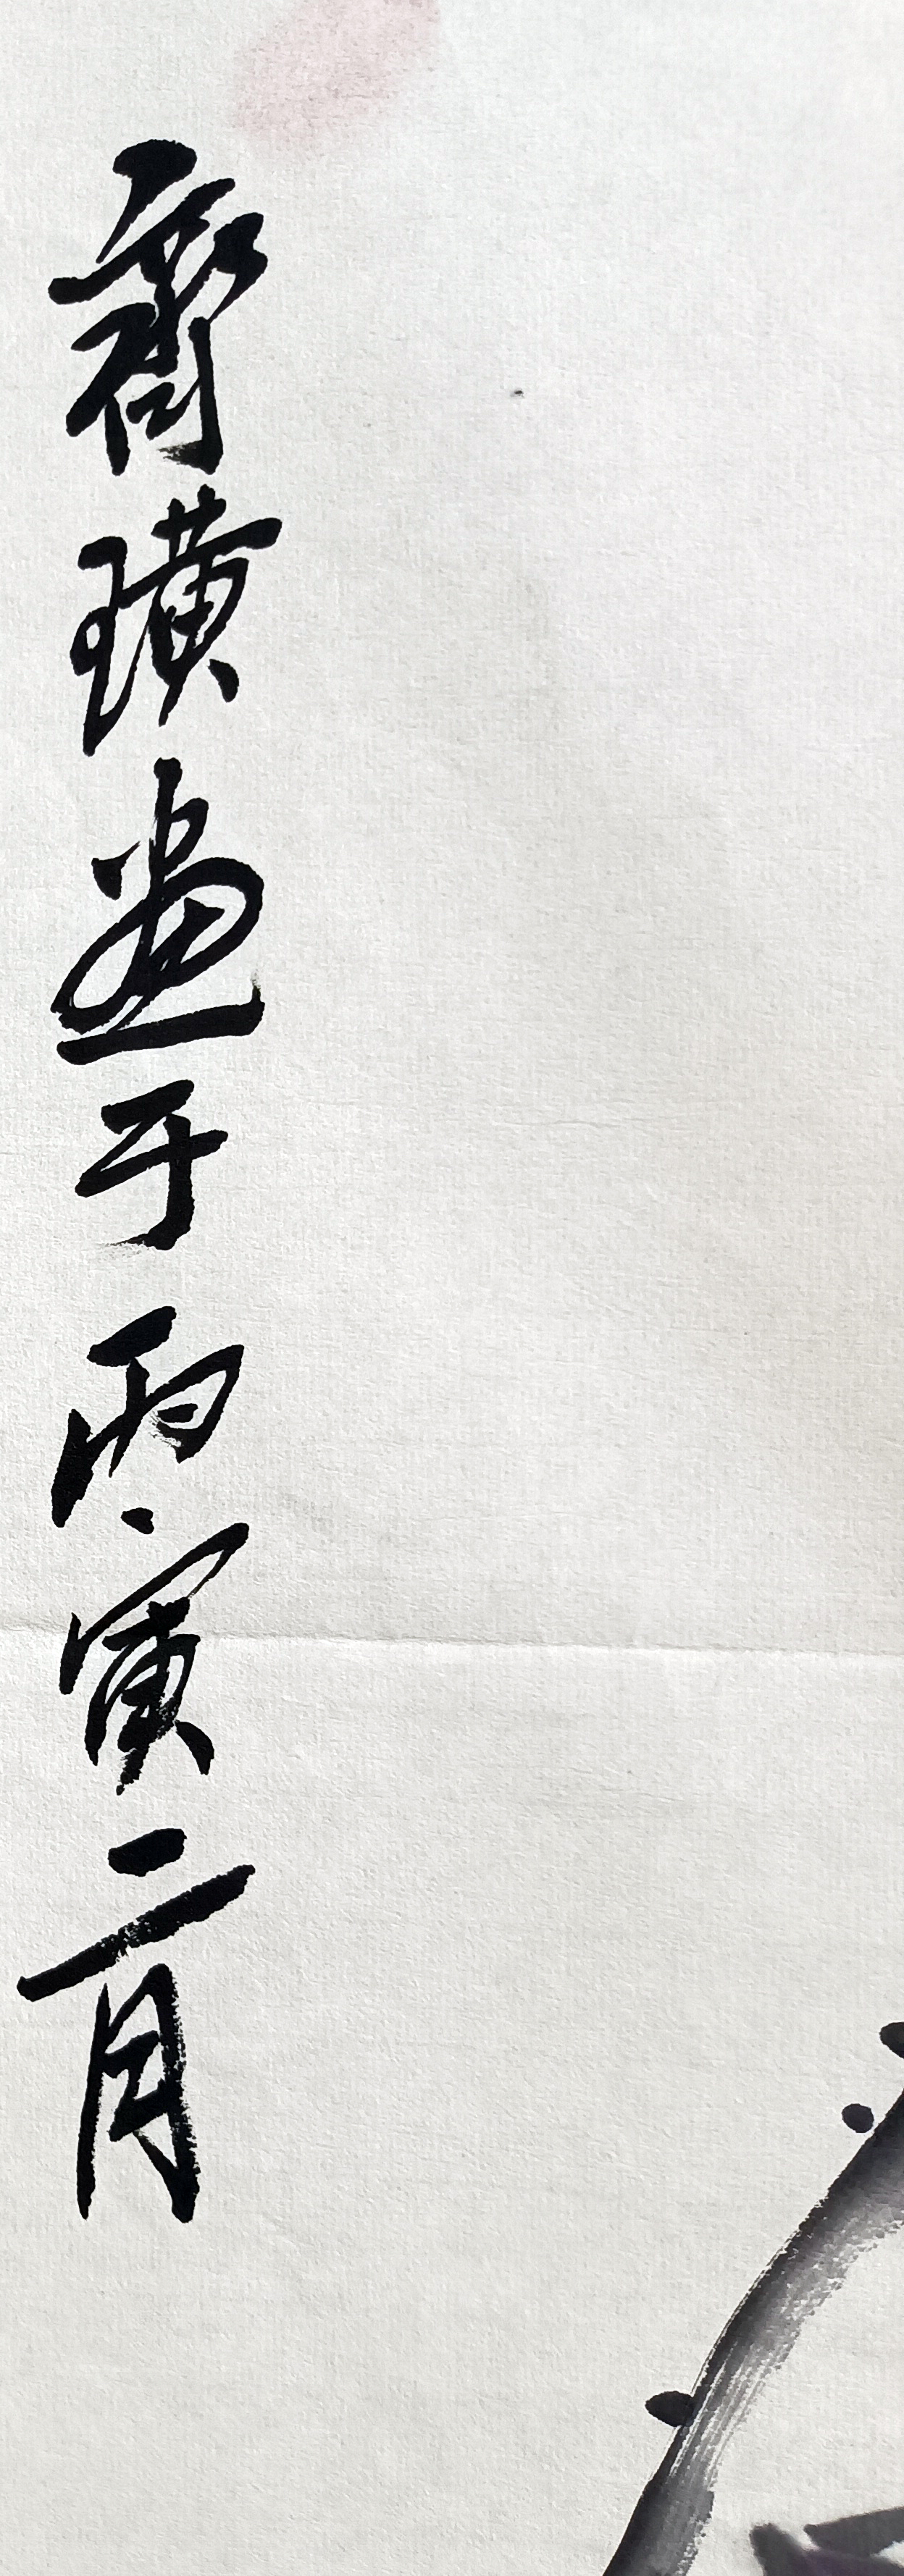 齊璜画于丙寅二月